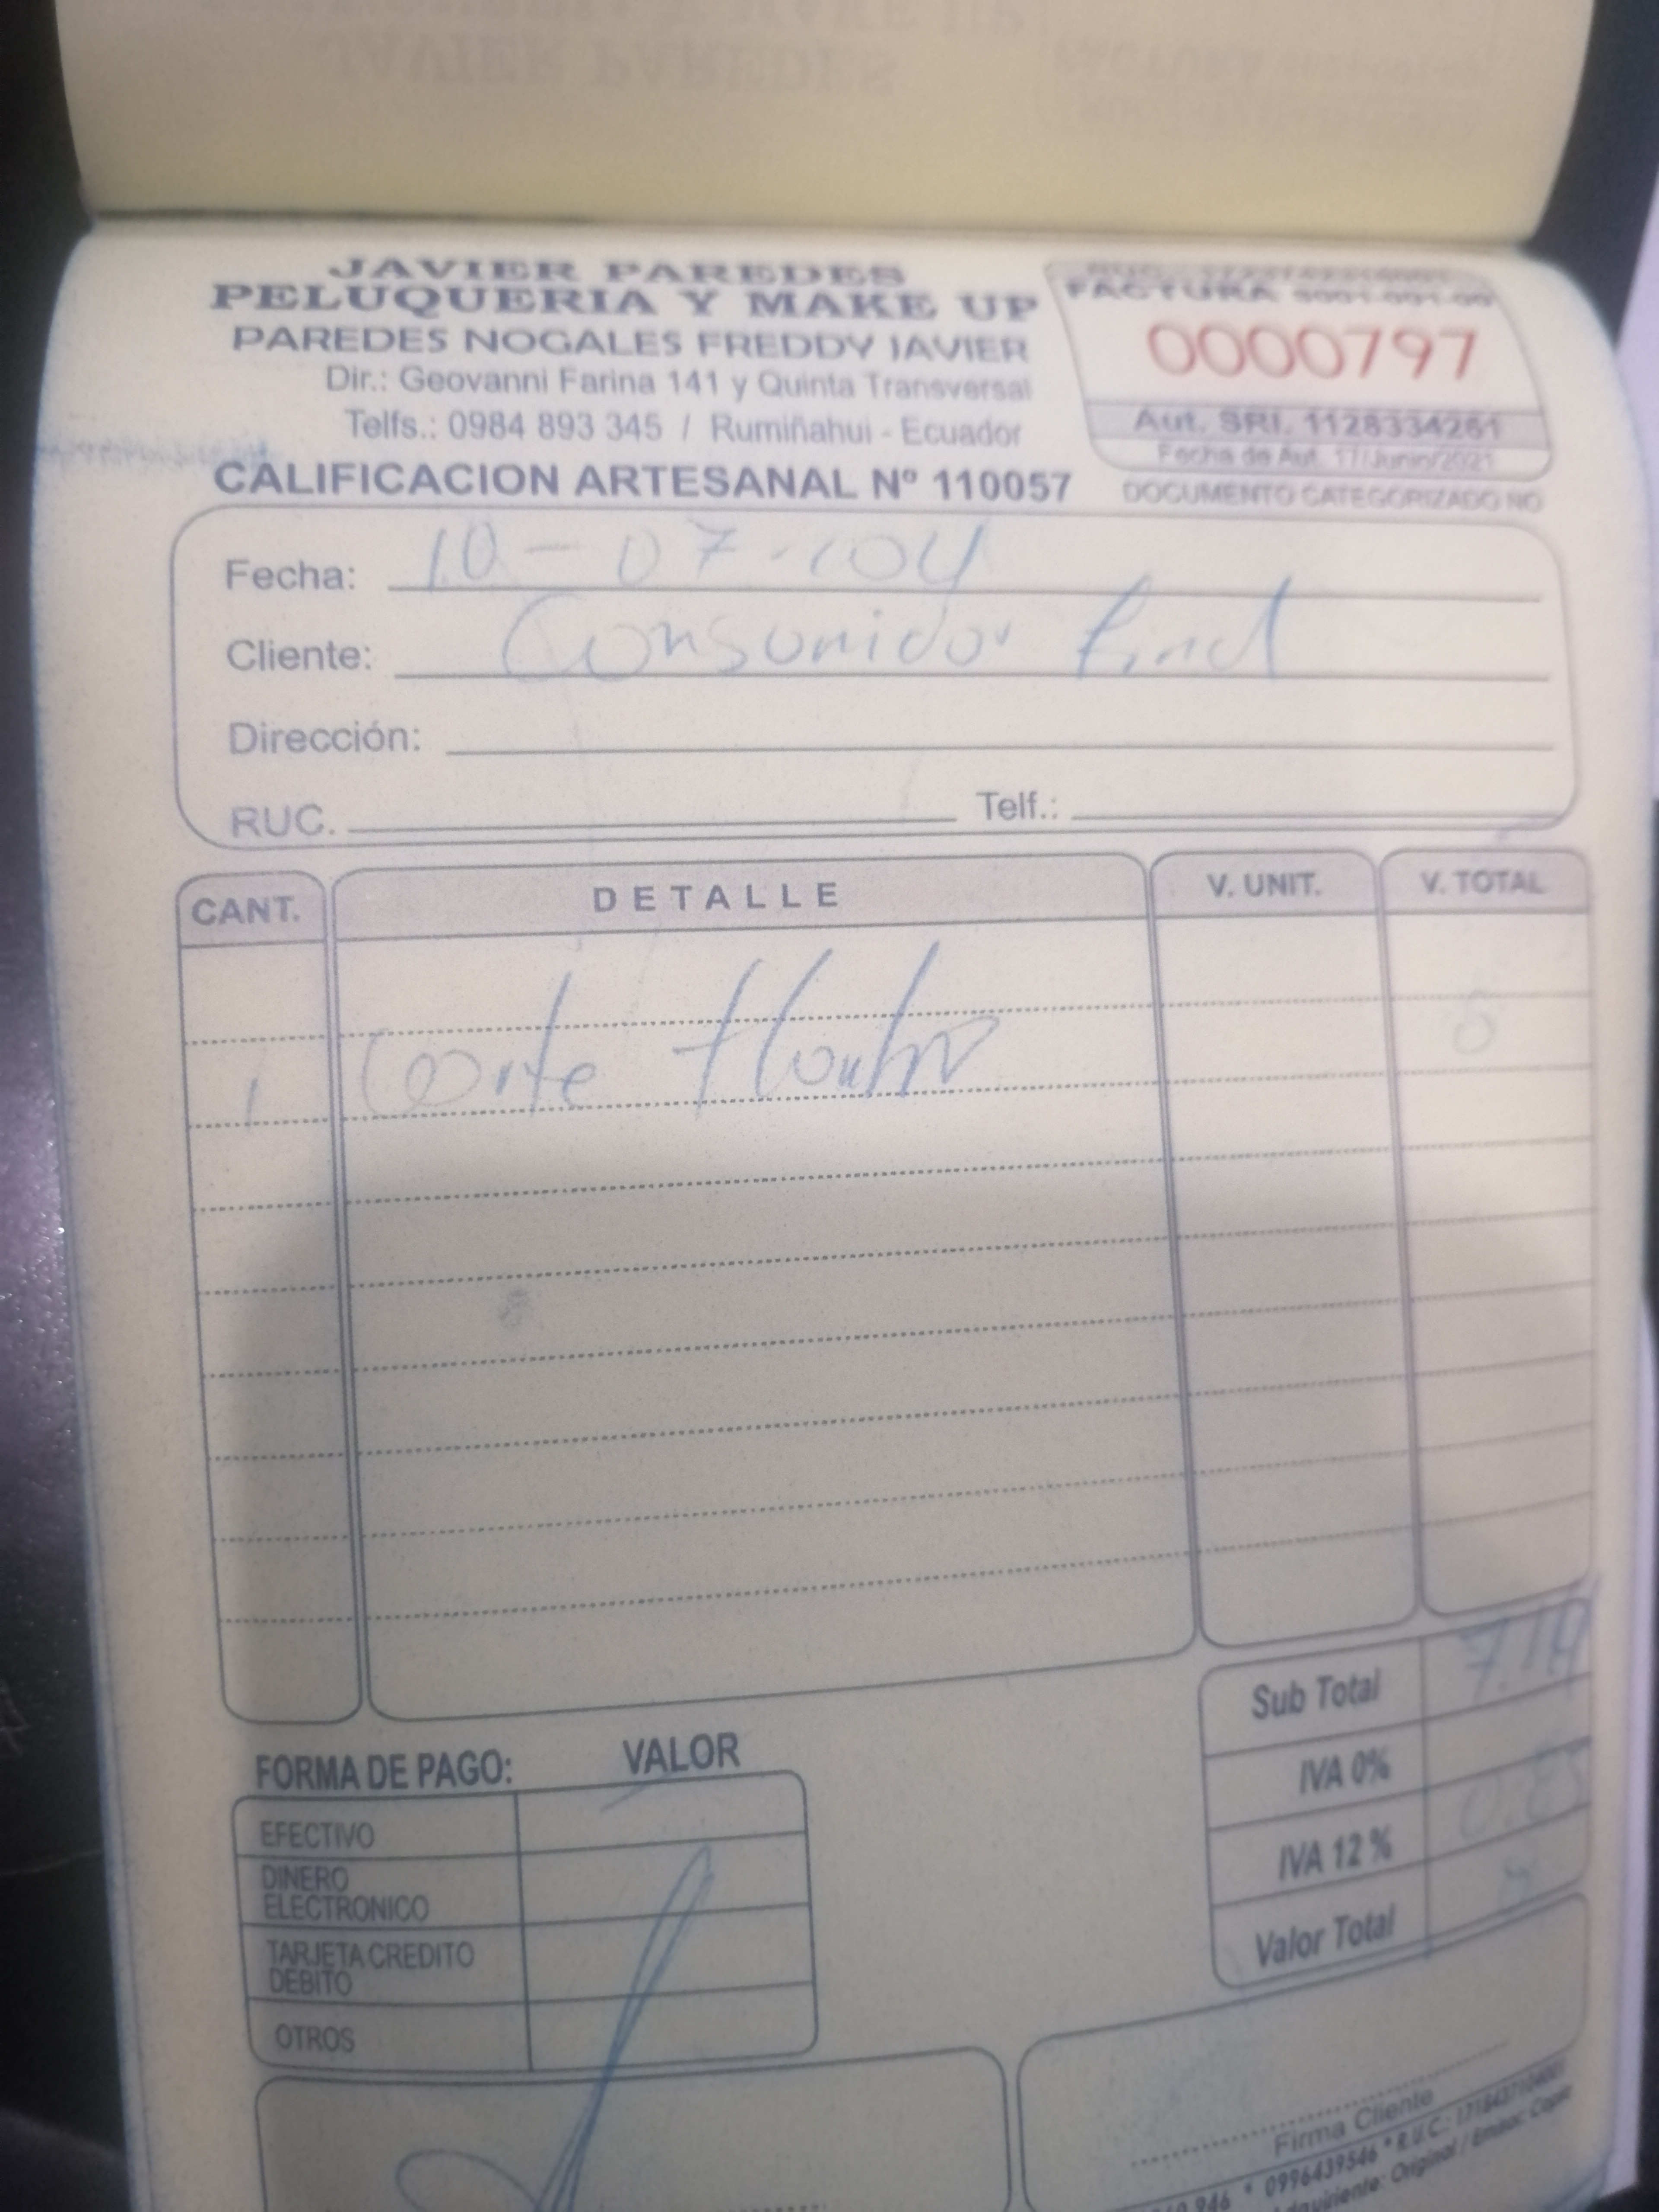 JAVIER PAREDES
PELUQUERIA Y MAKE UP
PAREDES NOGALES FREDDY JAVIER
Dir.: Geovanni Farina 141 y Quinta Transversal
Telfs.: 0984 893 345 / Rumiñahui - Ecuador
CALIFICACION ARTESANAL Nº 110057
FACTURA
0000797
Aut. SRI. 1128334261
Fecha de Aut. 17/Junio/2021
DOCUMENTO CATEGORIZADO NO
Fecha: 10-07-
Cliente: Consumidor final
Dirección:
RUC. Telf.:
CANT. DETALLE V. UNIT. V. TOTAL
1 Corte
Sub Total 7.14
IVA 0%
IVA 12 %
Valor Total
FORMA DE PAGO: VALOR
EFECTIVO
DINERO ELECTRONICO
TARJETA CREDITO DEBITO
OTROS
Firma Cliente
0996439546 * R.U.C.:
Original / Emisor: Copia